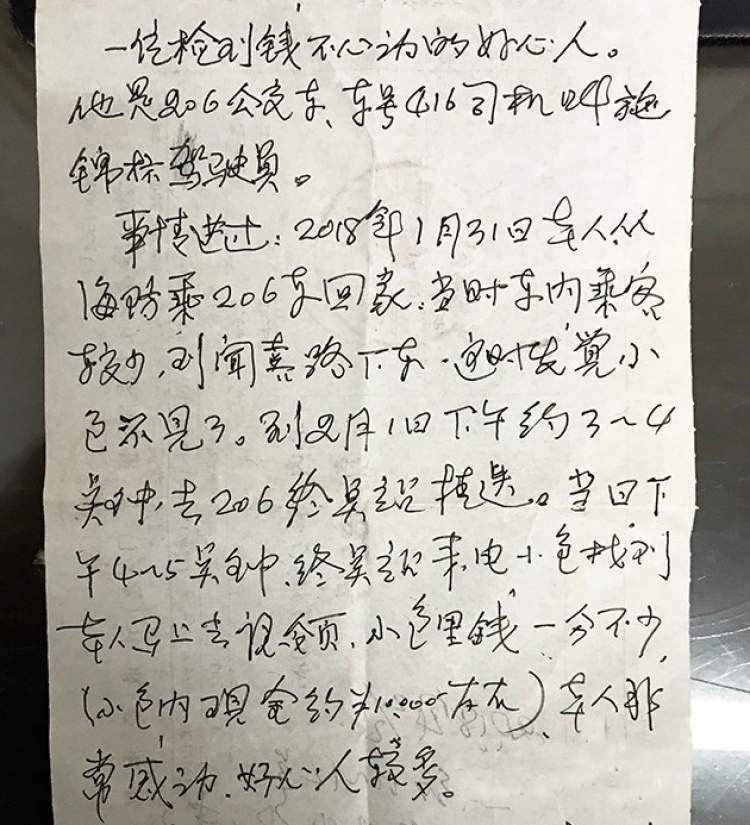 一位检到钱不心动的好心人。
他是206公交车、车号416司机叫施
锦标驾驶员。
事情进过：2018年1月31日本人从
海防乘206车回家，当时车内乘客
较少，到闻喜路下车，这时发觉小
包不见了。到2月1日下午约3～4
点钟，去206终点站挂失。当日下
午4～5点钟，终点站来电小包找到
本人马上去领，小包里钱一分不少，
（小包内现金约为10,000左右）、本人非
常感动，好心人较多。